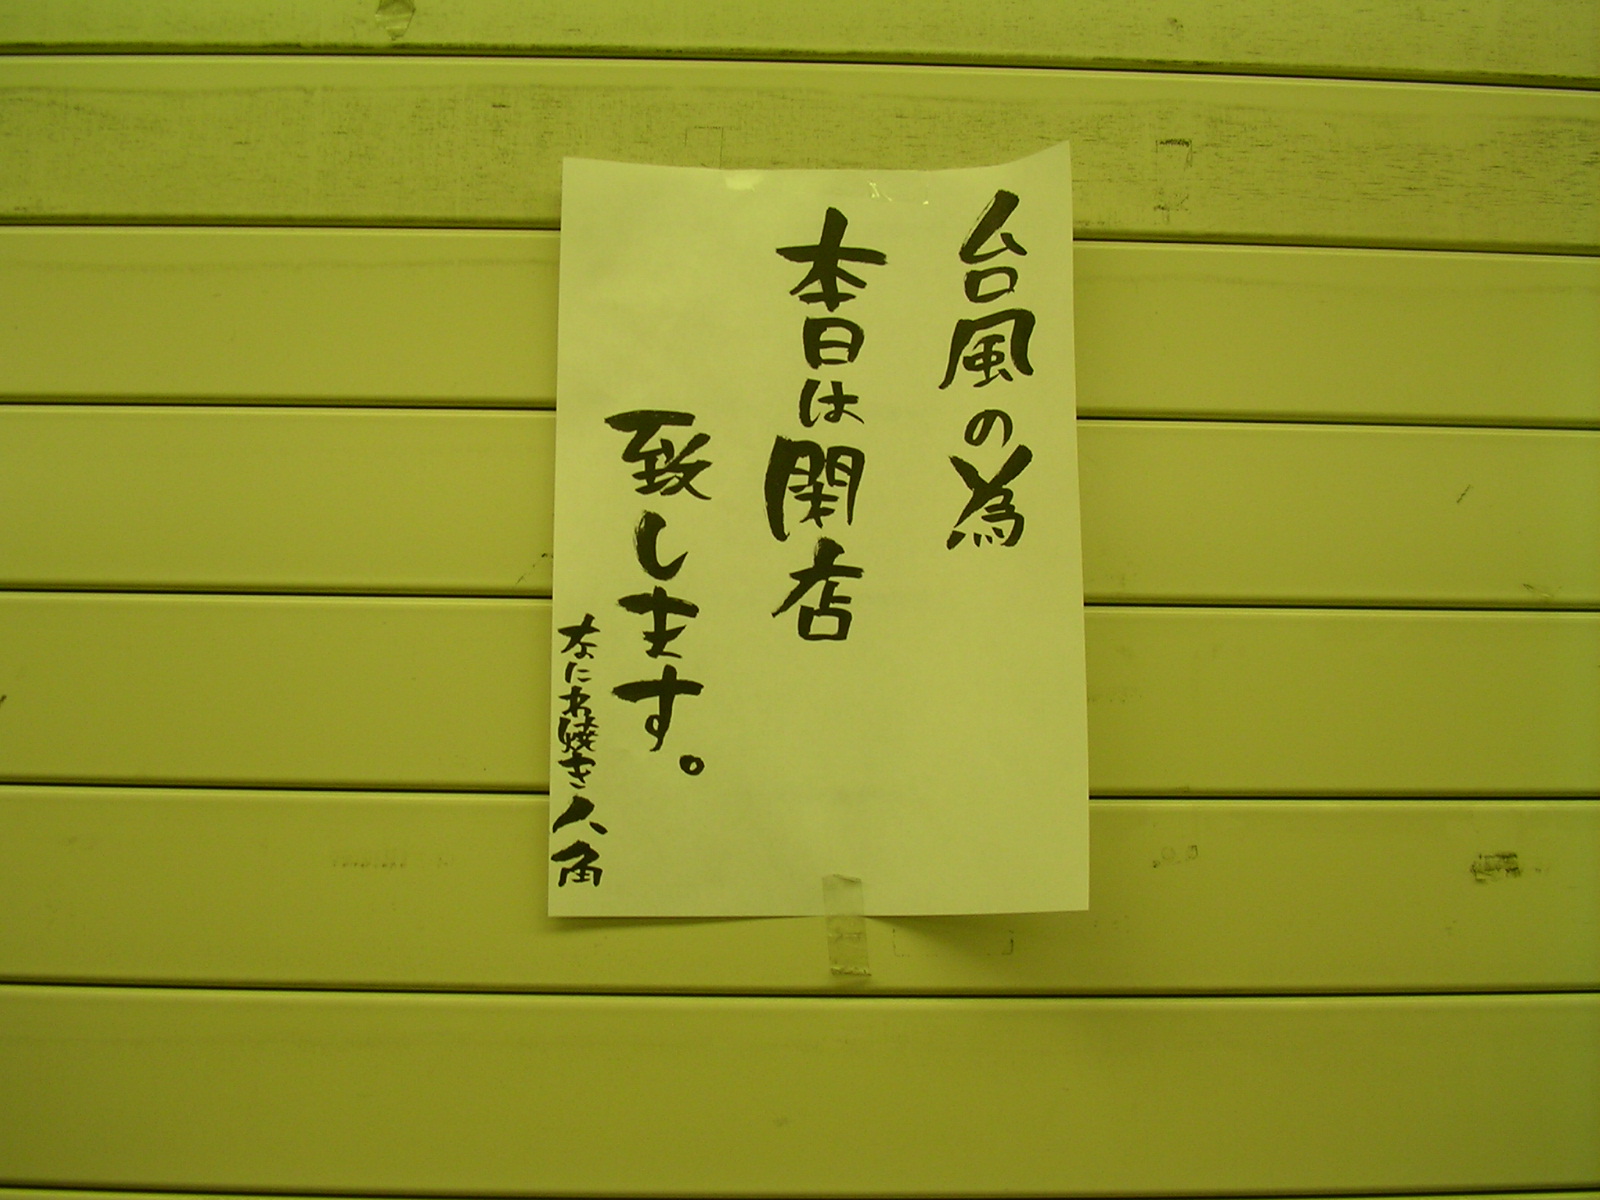 台風の為
本日は閉店
致します。
なにわ焼き八角